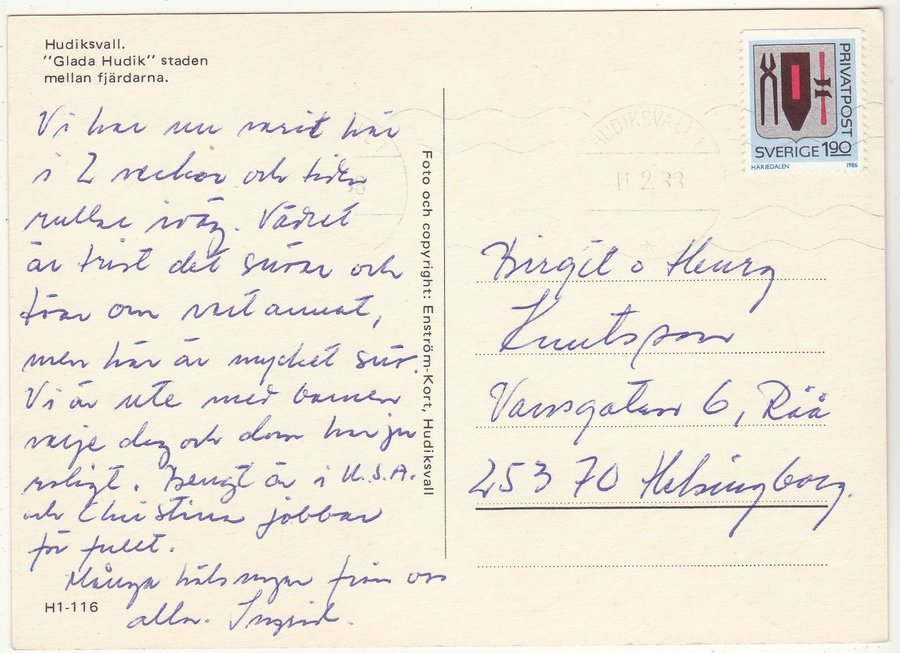 Hudiksvall.
"Glada Hudik" staden
mellan fjärdarna.
Vi har nu varit här
i 2 veckor och tiden
rullar iväg. Vädret
är trist det snöar och
töar om vartannat,
men här är mycket snö.
Vi är ute med barnen
varje dag och dom har ju
roligt. Bengt är i U.S.A.
och Christina jobbar
för fullt.
Många hälsningar från oss
alla. Ingrid.
H1-116
Foto och copyright: Enström-Kort, Hudiksvall
PRIVATPOST
SVERIGE 190
HÄRJEDALEN 1986
HUDIKSVALL
11.2.88
Birgit o Henry
Knutsson
Vansgatan 6, Råå
253 70 Helsingborg.